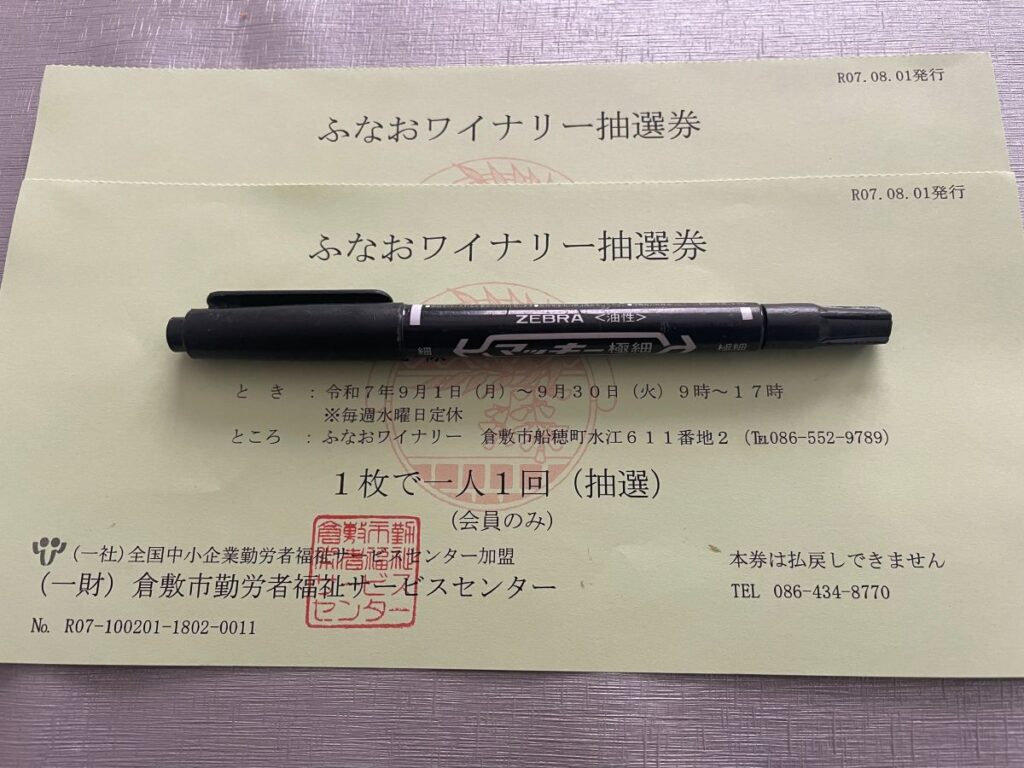 R07.08.01発行
ふなおワイナリー抽選券
R07.08.01発行
ふなおワイナリー抽選券
ZEBRA <油性>
細 マッキー極細 極細
とき：令和７年９月１日（月）～９月３０日（火）９時～１７時
※毎週水曜日定休
ところ：ふなおワイナリー 倉敷市船穂町水江６１１番地２（℡086-552-9789）
１枚で一人１回（抽選）
（会員のみ）
（一社）全国中小企業勤労者福祉サービスセンター加盟
本券は払戻しできません
（一財）倉敷市勤労者福祉サービスセンター
TEL 086-434-8770
倉敷市勤
労者福祉
サービス
センター
№ R07-100201-1802-0011